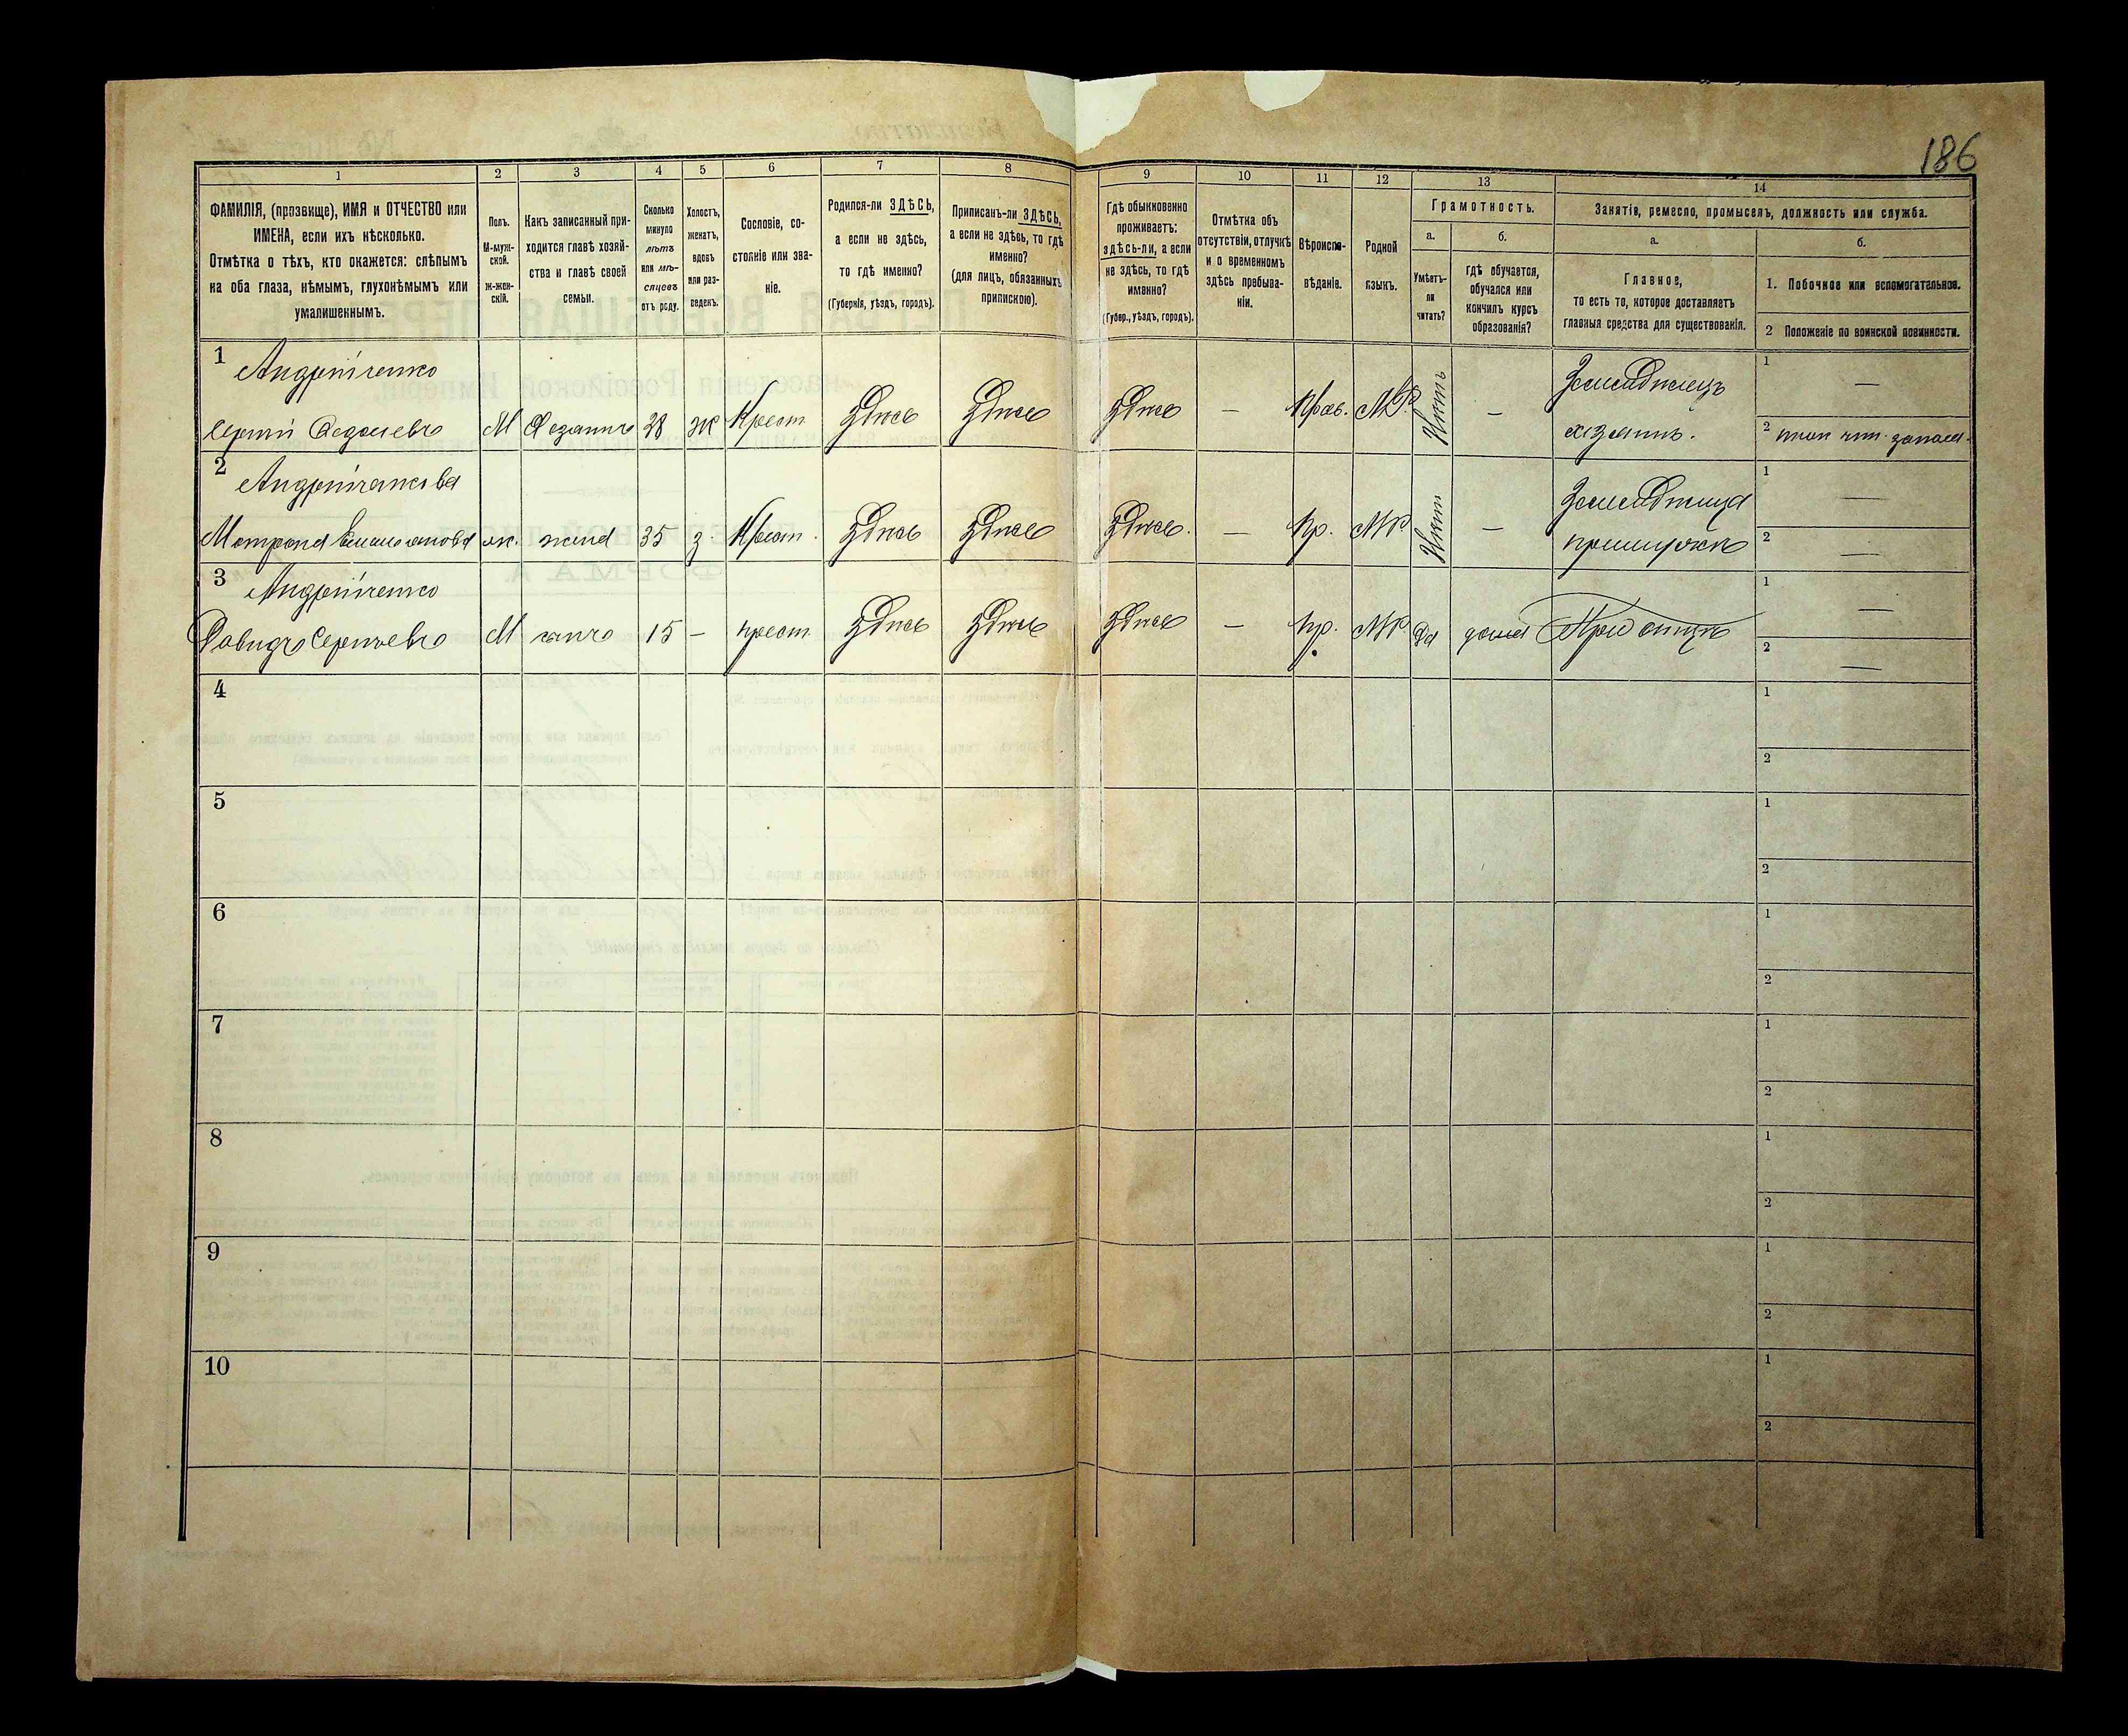 186
1 2 3 4 5 6 7 8 9 10 11 12 13 14
ФАМИЛІЯ, (прозвище), ИМЯ и ОТЧЕСТВО или
ИМЕНА, если ихъ нѣсколько.
Отмѣтка о тѣхъ, кто окажется: слѣпымъ
на оба глаза, нѣмымъ, глухонѣмымъ или
умалишеннымъ.
Полъ.
М-муж-
ской.
Ж-жен-
скій.
Какъ записанный при-
ходится главѣ хозяй-
ства и главѣ своей
семьи.
Сколько
минуло
лѣтъ
или мѣ-
сяцевъ
отъ роду.
Холостъ,
женатъ,
вдовъ
или раз-
веденъ.
Сословіе, со-
стояніе или зва-
ніе.
Родился-ли ЗДѢСЬ,
а если не здѣсь,
то гдѣ именно?
(Губернія, уѣздъ, городъ).
Приписанъ-ли ЗДѢСЬ,
а если не здѣсь, то гдѣ
именно?
(для лицъ, обязанныхъ
припискою).
Гдѣ обыкновенно
проживаетъ:
здѣсь-ли, а если
не здѣсь, то гдѣ
именно?
(Губер., уѣздъ, городъ).
Отмѣтка объ
отсутствіи, отлучкѣ
и о временномъ
здѣсь пребыва-
ніи.
Вѣроиспо-
вѣданіе.
Родной
языкъ.
Грамотность.
а.
Умѣетъ-
ли
читать?
б.
Гдѣ обучается,
обучался или
кончилъ курсъ
образованія?
Занятіе, ремесло, промыселъ, должность или служба.
а.
Главное,
то есть то, которое доставляетъ
главныя средства для существованія.
б.
1. Побочное или вспомогательное.
2 Положеніе по воинской повинности.
1 Андрійченко
Сергій М Хозяинъ 28 ж Крест. Здѣсь Здѣсь Здѣсь — Прав. М.Р. Нѣтъ — Земледѣлецъ
хозяинъ.
1 —
2
2
Матрона ж. жена 35 з. Крест. Здѣсь Здѣсь Здѣсь. — Пр. МР. Нѣтъ —
1 —
2 —
3 Андрійченко
Давидъ Сергѣевъ М сынъ 15 — крест. Здѣсь Здѣсь Здѣсь — Пр. МР. Да дома При отцѣ
1 —
2 —
4
1
2
5
1
2
6
1
2
7
1
2
8
1
2
9
1
2
10
1
2